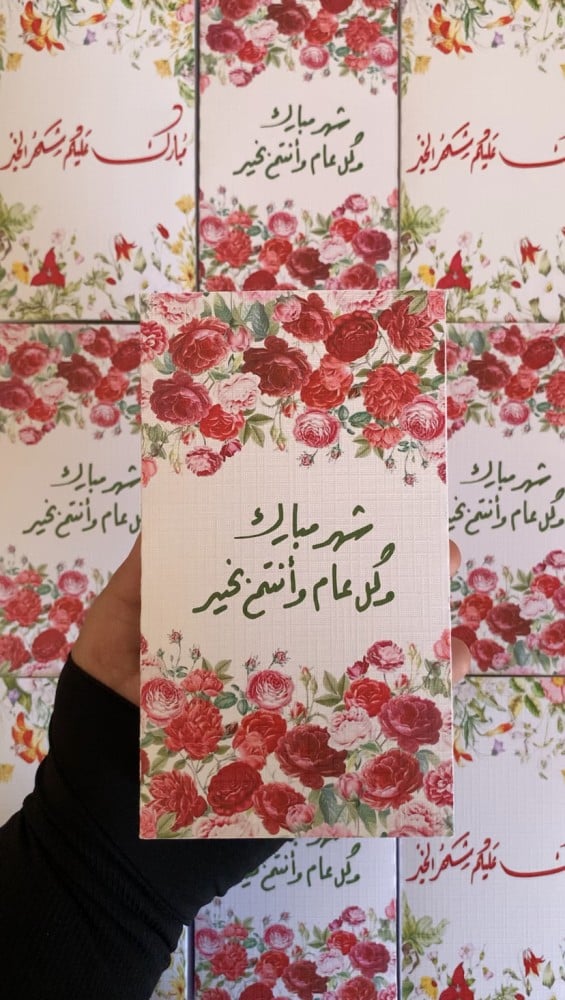 عَليكُم شَهرُ الخَير
شهر مبارك
وكل عام وأنتم بخير
مُبارك عَليكُم شَهرُ الخَير
شهر مبارك
وكل عام وأنتم بخير
شهر مبارك
وكل عام وأنتم بخير
شهر مبارك
ل عام وأنتم بخير
عَليكُم شَهرُ الخَير
وكل عام وأنتم بخير